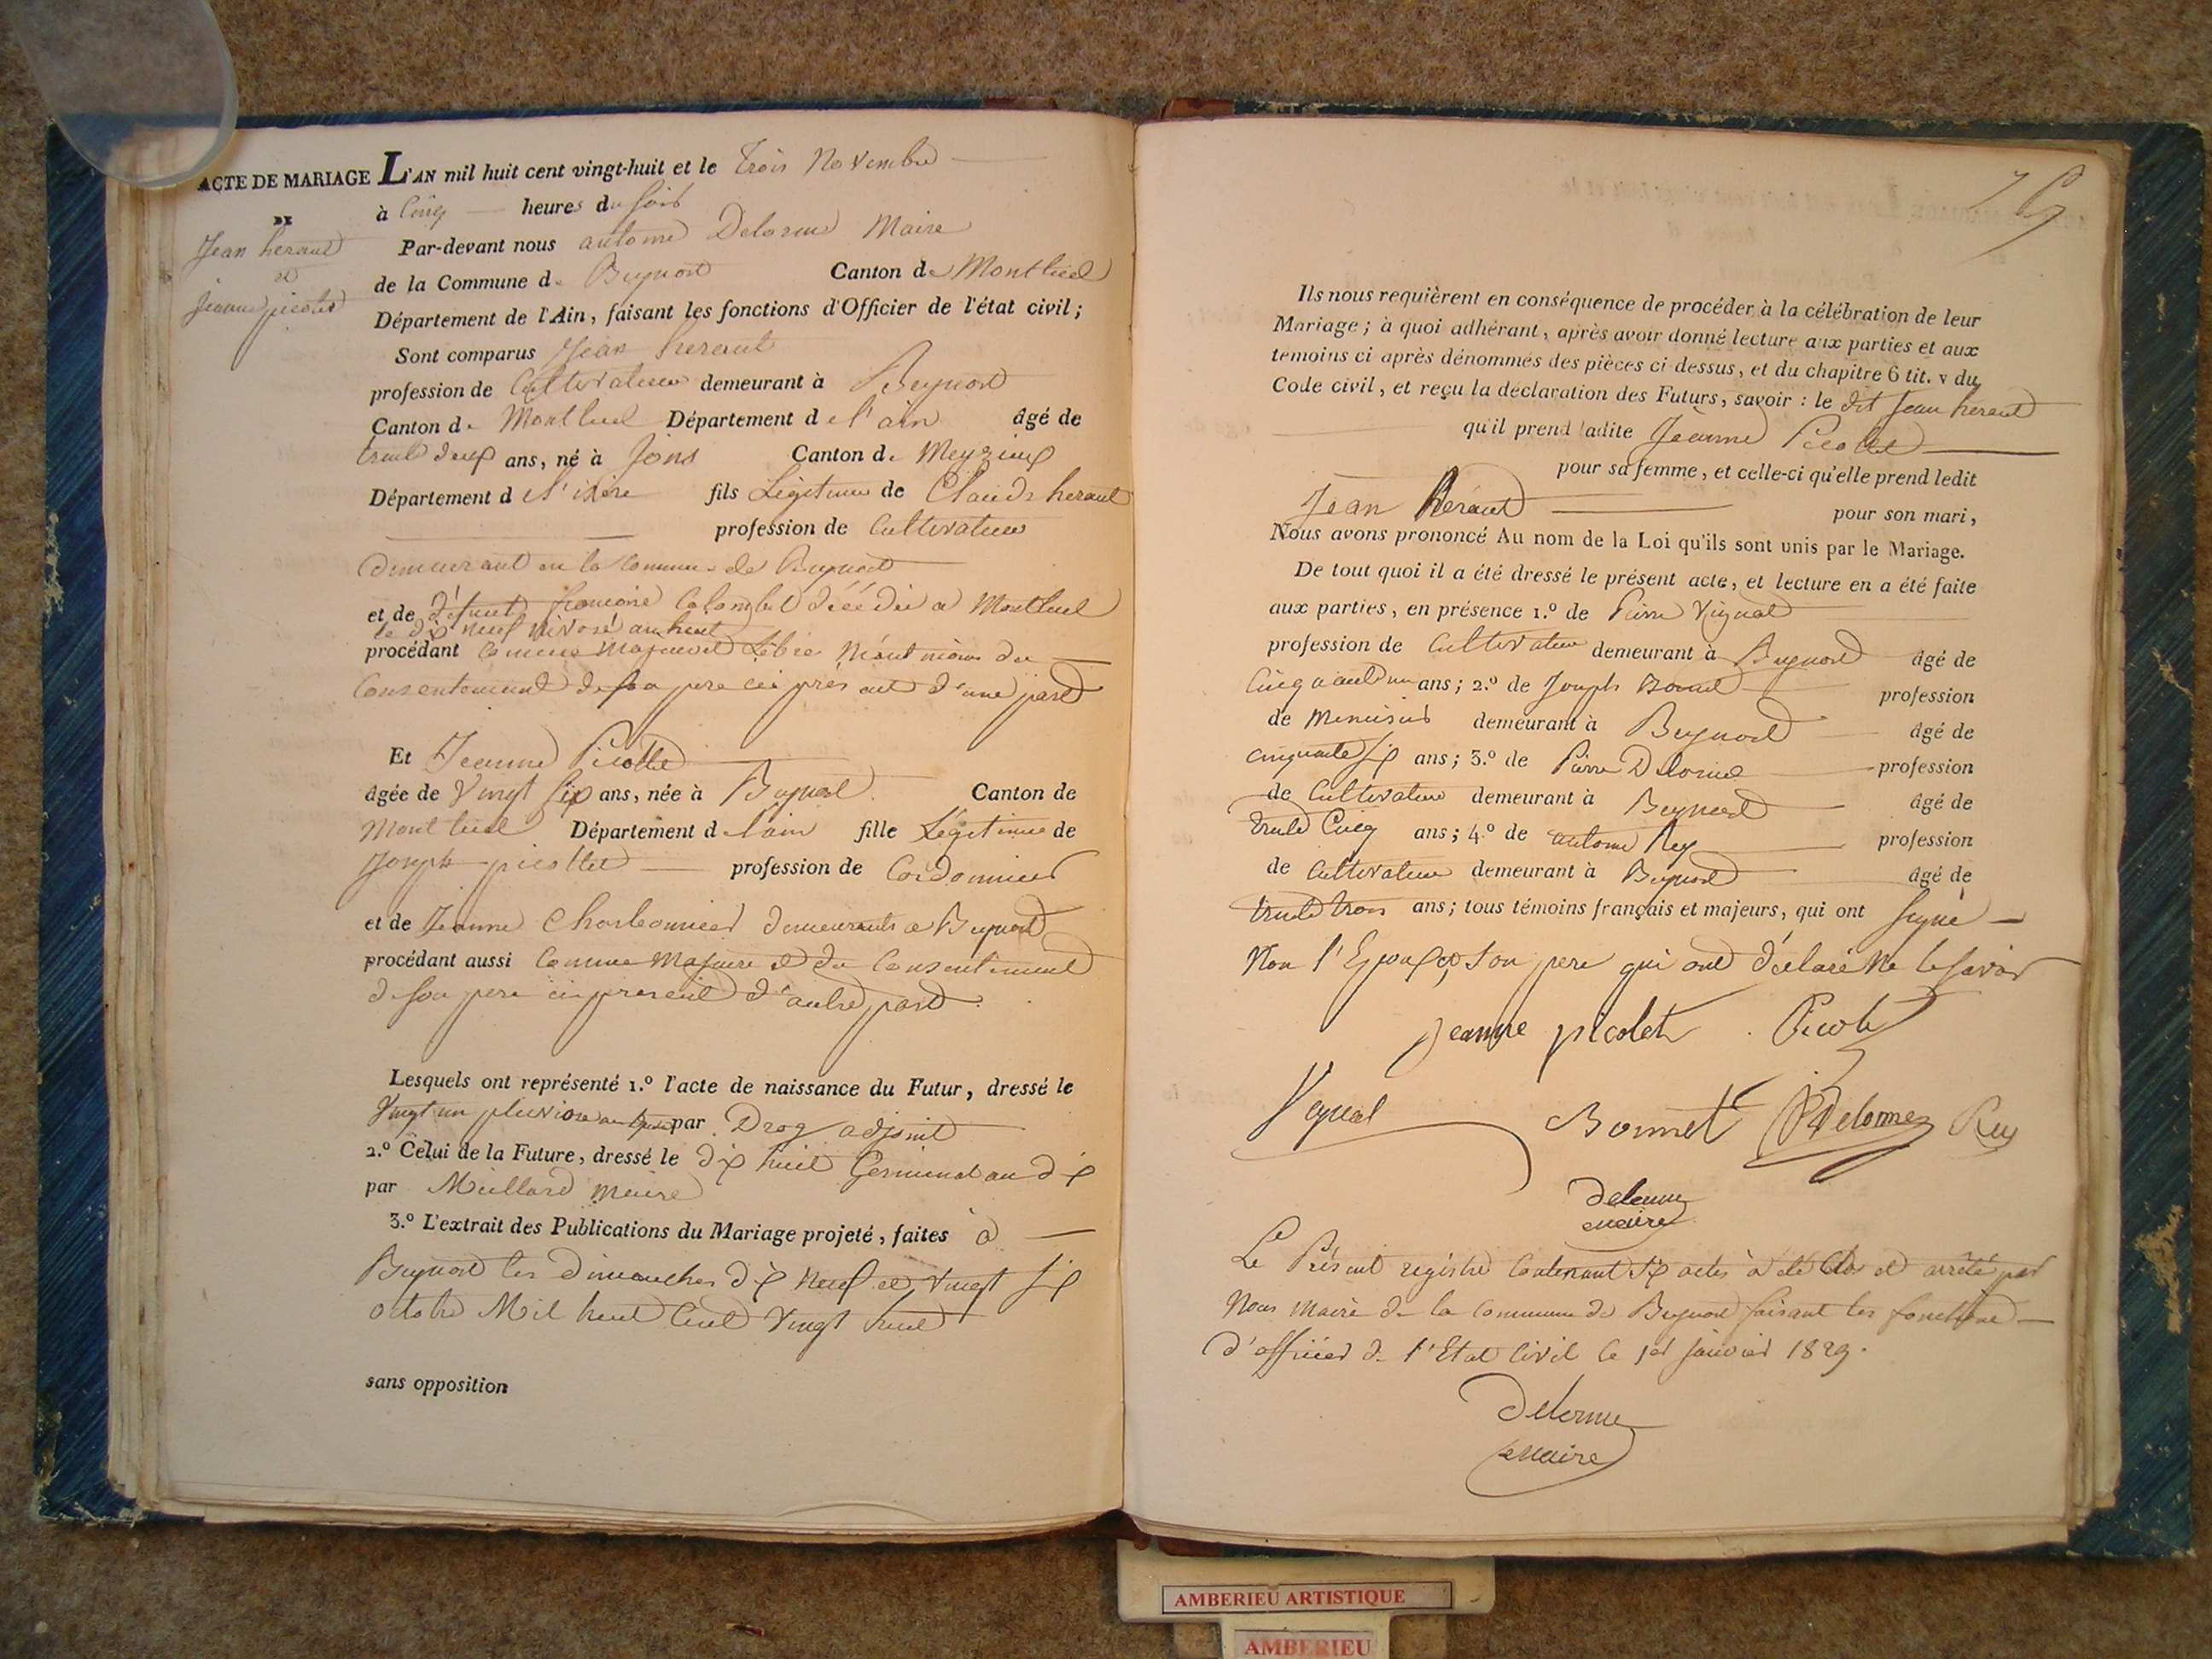 ACTE DE MARIAGE L'AN mil huit cent vingt-huit et le trois Novembre
DE
à Cinq heures du soir
Jean heraut
et
jeanne picolet
Par-devant nous antoine Delorme Maire
de la Commune de Beynost Canton de Montluel
Département de l'Ain, faisant les fonctions d'Officier de l'état civil;
Sont comparus Jean heraut
profession de Cultivateur demeurant à Beynost
Canton de Montluel Département de l'ain âgé de
trente deux ans, né à Jons Canton de Meyzieux
Département de l'isère fils Légitime de Claude heraut
profession de Cultivateur
demeurant en la Commune de Beynost
et de défunte françoise Colombet décédée a Montluel
le dix neuf nivose an huit
procédant comme majeur et Libre néantmoins du
Consentement de son pere ici présent d'une part
Et Jeanne Picollet
âgée de Vingt six ans, née à Beynost Canton de
Montluel Département de l'ain fille Légitime de
Joseph picollet profession de Cordonnier
et de Jeanne Charbonnier demeurants a Beynost
procédant aussi Comme Majeure et du Consentement
de son pere ici present d'autre part.
Lesquels ont représenté 1.º l'acte de naissance du Futur, dressé le
Vingt un pluviose an par Drog adjoint
2.º Celui de la Future, dressé le dix huit Germinal an dix
par Meillard maire
3.º L'extrait des Publications du Mariage projeté, faites à
Beynost les dimanches dix neuf et vingt six
octobre Mil huit Cent Vingt huit
sans opposition
Ils nous requièrent en conséquence de procéder à la célébration de leur
Mariage; à quoi adhérant, après avoir donné lecture aux parties et aux
témoins ci après dénommés des pièces ci-dessus, et du chapitre 6 tit. v du
Code civil, et reçu la déclaration des Futurs, savoir : le dit Jean heraut
qu'il prend ladite Jeanne Picollet
pour sa femme, et celle-ci qu'elle prend ledit
Jean Heraut
pour son mari,
Nous avons prononcé Au nom de la Loi qu'ils sont unis par le Mariage.
De tout quoi il a été dressé le présent acte, et lecture en a été faite
aux parties, en présence 1.º de Pierre Vignal
profession de Cultivateur demeurant à Beynost âgé de
Cinquante un ans; 2.º de Joseph Bonnet profession
de Menuisier demeurant à Beynost âgé de
cinquante six ans; 3.º de Pierre Delorme profession
de Cultivateur demeurant à Beynost âgé de
trente Cinq ans; 4.º de antoine Rey profession
de Cultivateur demeurant à Beynost âgé de
trente trois ans; tous témoins français et majeurs, qui ont signé
Non l'Epoux et son pere qui ont déclaré Ne le savoir
jeanne picolet Picolet
Vignal Bonnet PDelorme Rey
Delorme
maire
Le Présent registre Contenant dix actes à été Clos et arrêté par
Nous Maire de la Commune de Beynost faisant les fonctions
d'officier de l'Etat Civil le 1er janvier 1829.
Delorme
maire
AMBERIEU ARTISTIQUE
AMBERIEU